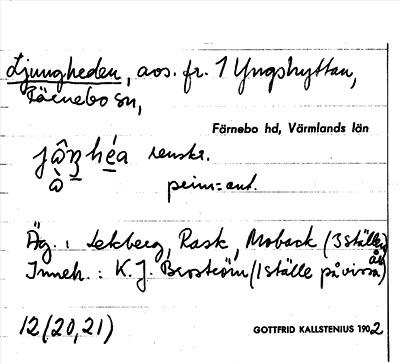 Ljungheden, avs. fr. 1 Yngshyttan,
Färnebo sn,
Färnebo hd, Värmlands län
renskr.
prim=ant.
Äg.: Lekberg, Rask, Moback (3 ställen)
Inneh.: K. J. Broström (1 ställe på vissa år)
12 (20, 21)
GOTTFRID KALLSTENIUS 1902